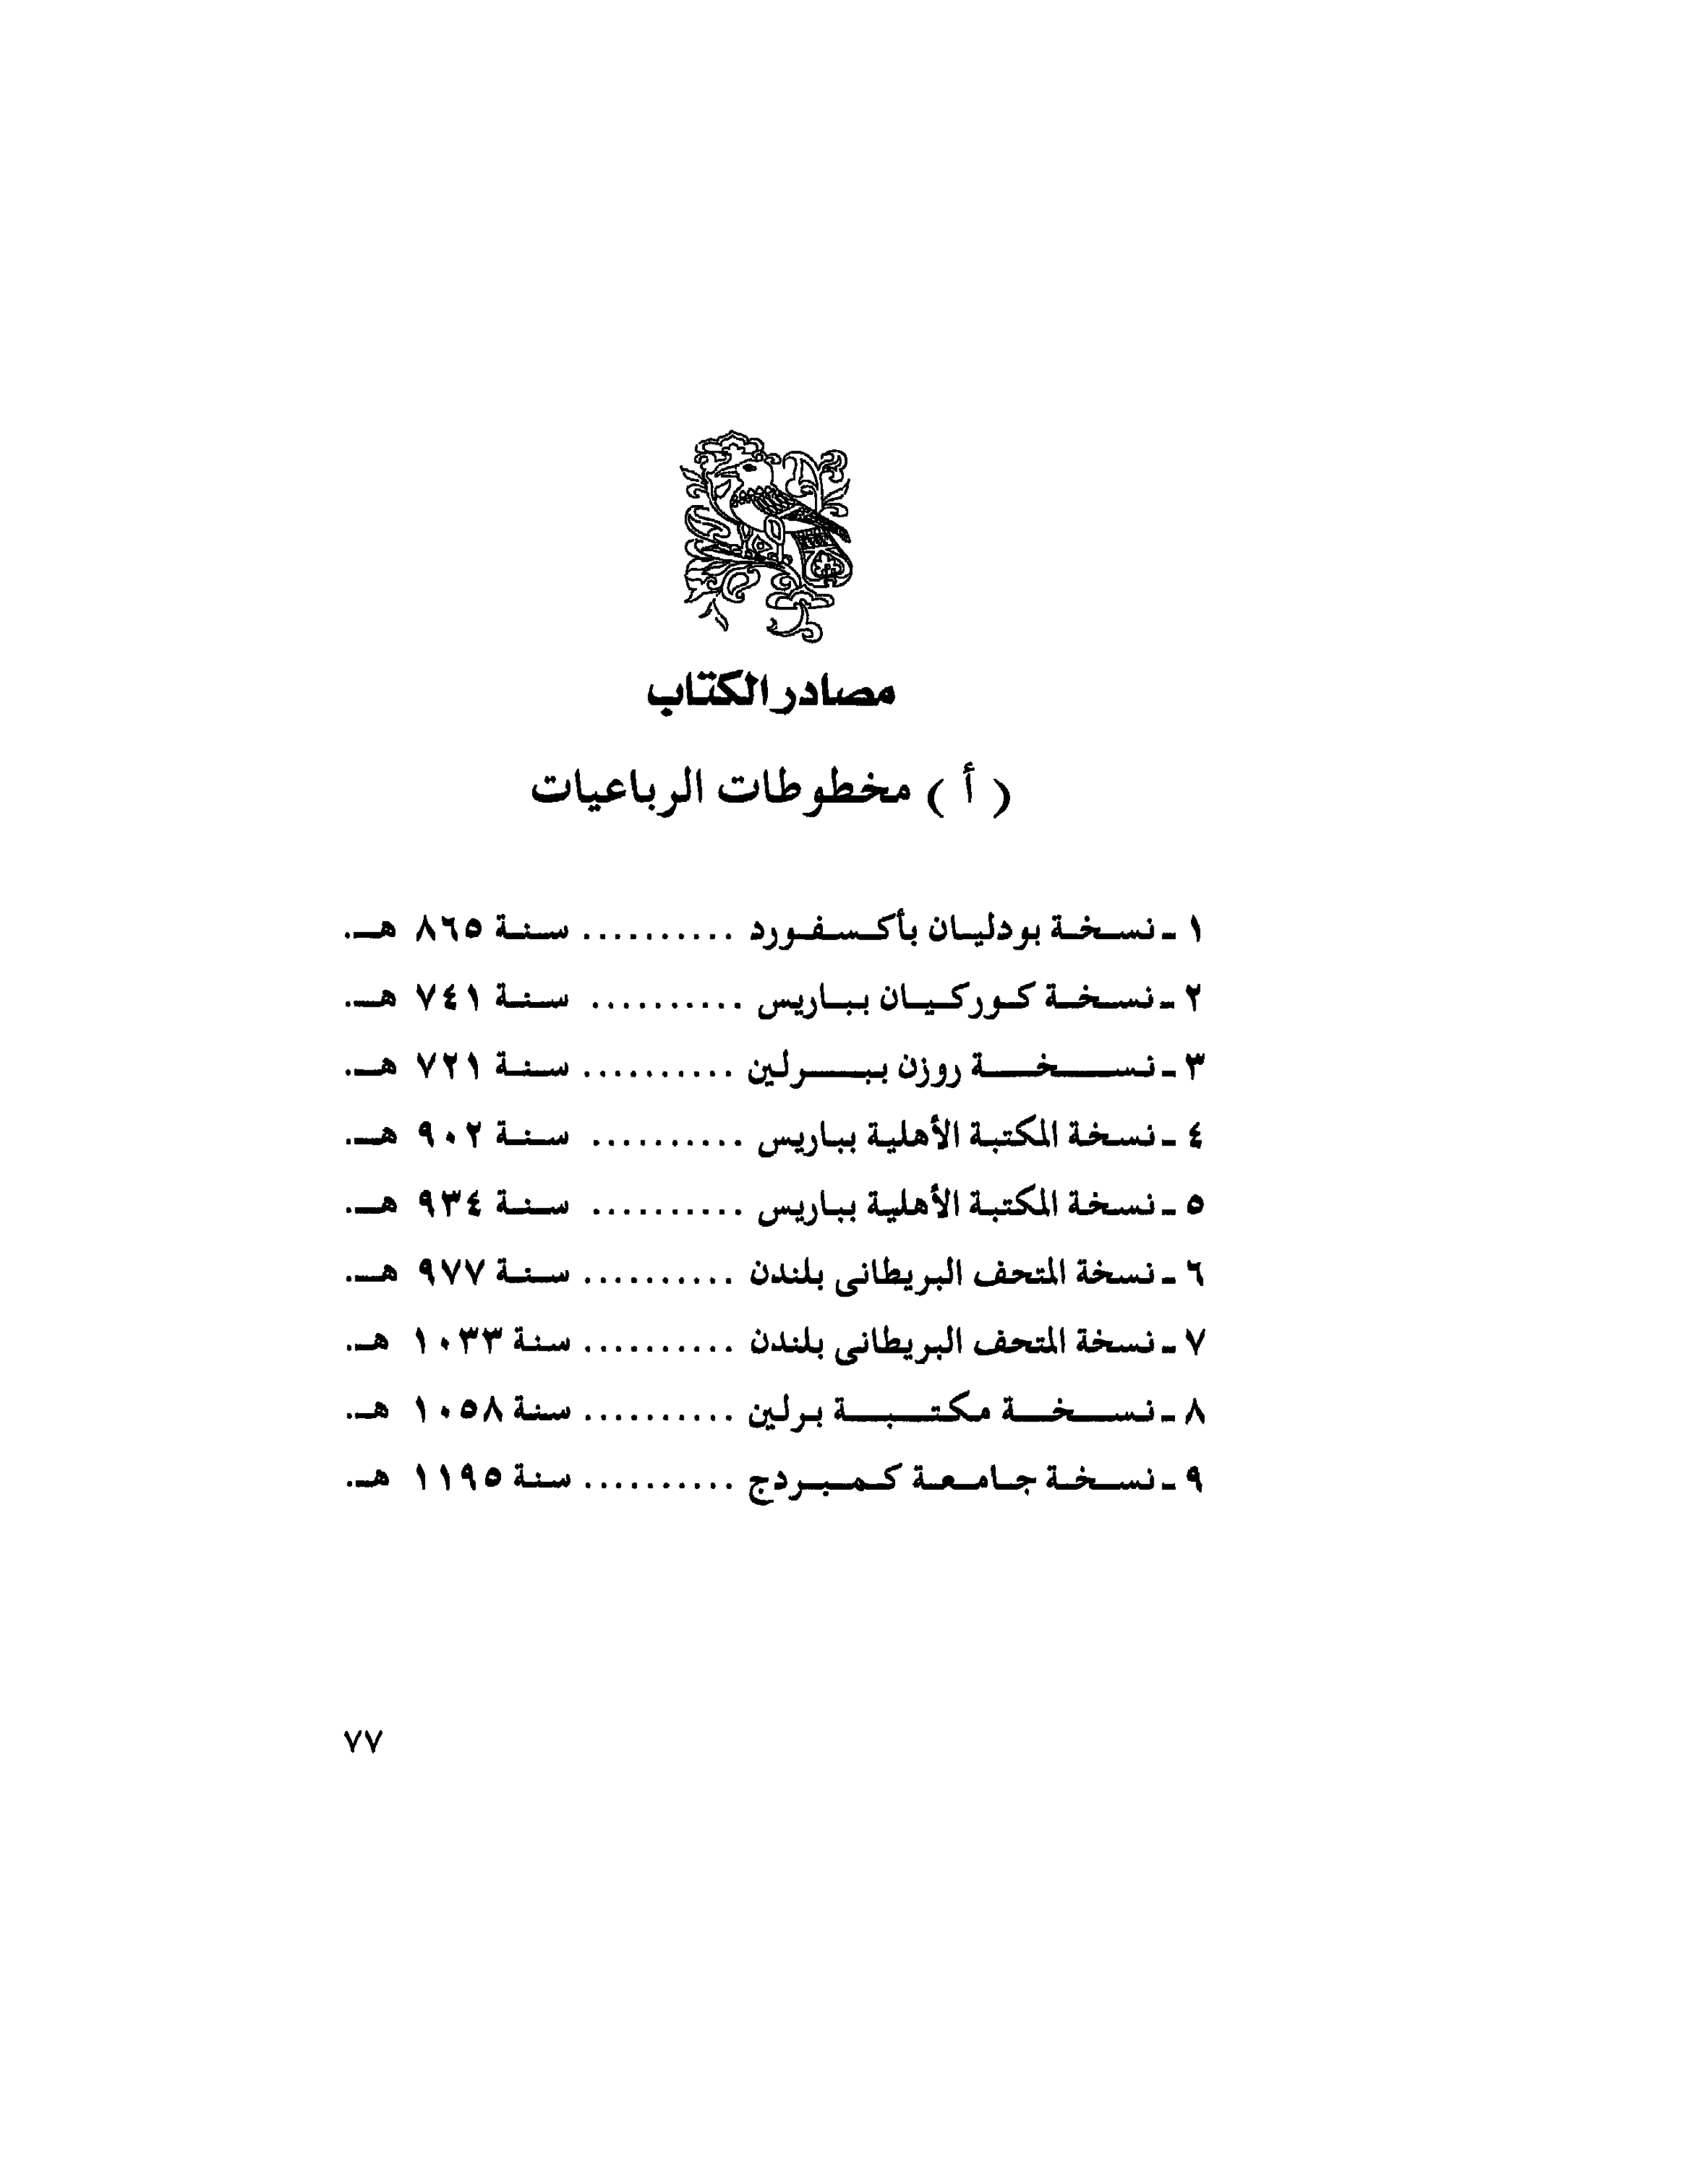 مصادر الكتاب
( أ ) مخطوطات الرباعيات
١ - نسخة بودليان بأكسفورد .......... سنة ٨٦٥ هـ.
٢ - نسخة كوركيان بباريس .......... سنة ٧٤١ هـ.
٣ - نسخة روزن ببرلين .......... سنة ٧٢١ هـ.
٤ - نسخة المكتبة الأهلية بباريس .......... سنة ٩٠٢ هـ.
٥ - نسخة المكتبة الأهلية بباريس .......... سنة ٩٣٤ هـ.
٦ - نسخة المتحف البريطانى بلندن .......... سنة ٩٧٧ هـ.
٧ - نسخة المتحف البريطانى بلندن .......... سنة ١٠٣٣ هـ.
٨ - نسخة مكتبة برلين .......... سنة ١٠٥٨ هـ.
٩ - نسخة جامعة كمبردج .......... سنة ١١٩٥ هـ.
٧٧